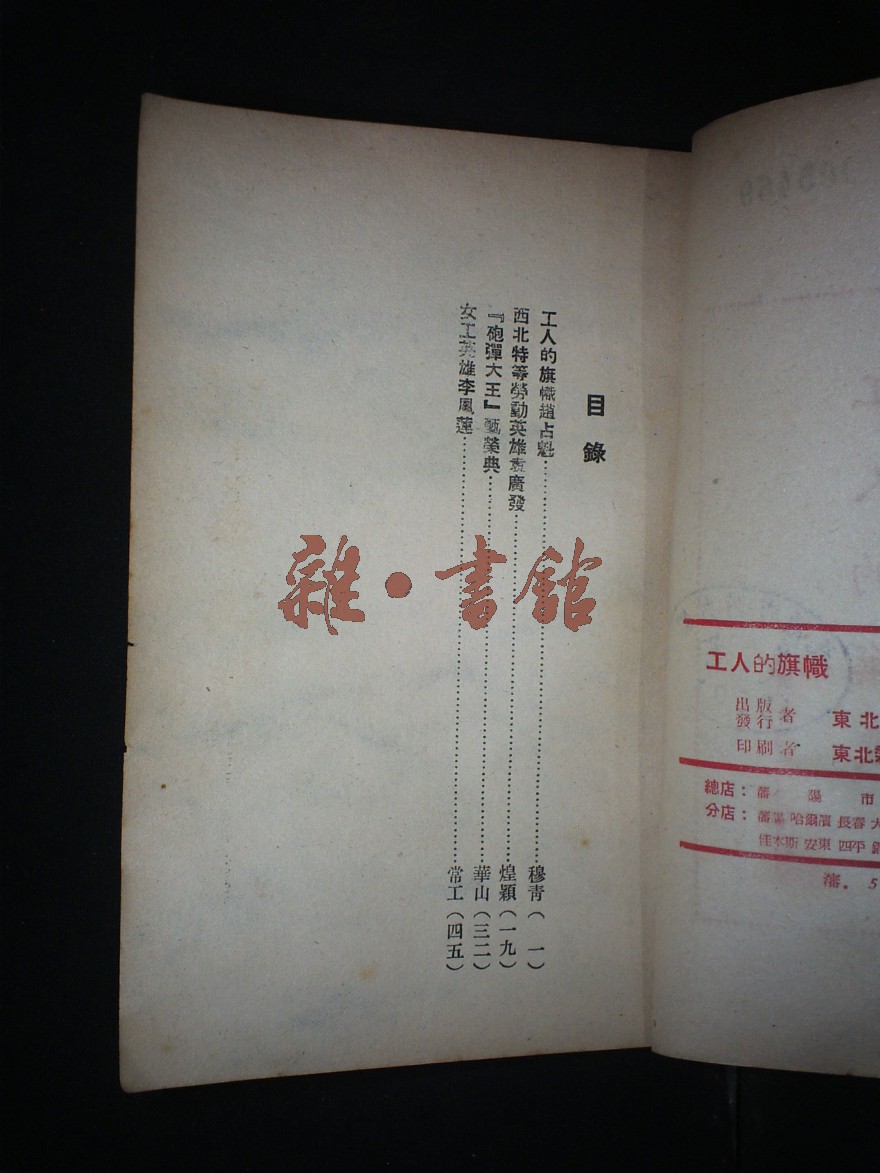 目錄
工人的旗幟趙占魁……穆青(一)
西北特等勞動英雄袁廣發……煌穎(一九)
『砲彈大王』甄榮典……華山(三二)
女工英雄李鳳蓮……常工(四五)
雜·書館
工人的旗幟
出版
發行者 東北
印刷者 東北
總店：瀋陽市
分店：瀋陽 哈爾濱 長春 大
佳木斯 安東 四平 錦
瀋. 5